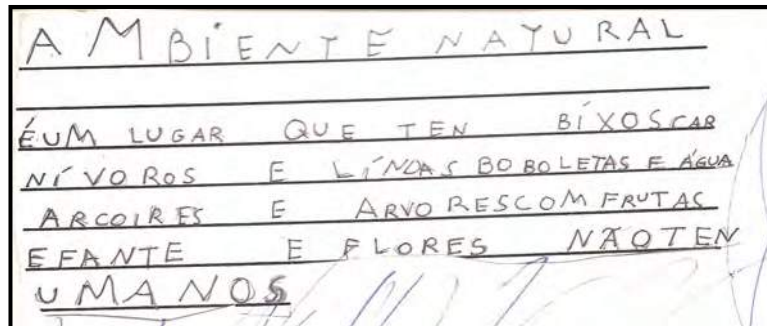 AMBIENTE NATURAL
ÉUM LUGAR QUE TEN BÍXOSCAR
NÍVOROS E LÍNDAS BOBOLETAS E ÁGUA
ARCOIRES E ARVORESCOM FRUTAS
EFANTE E FLORES NÃOTEN
UMANOS